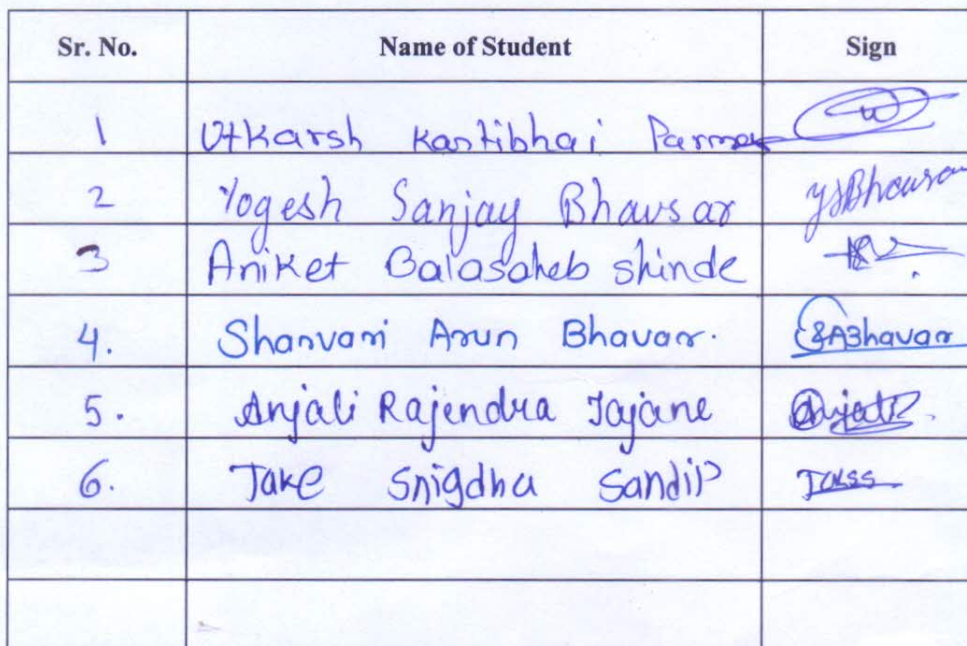 Sr. No. Name of Student Sign
1 Utkarsh Kantibhai Parmar
2 Yogesh Sanjay Bhavsar YSBhavsar
3 Aniket Balasaheb Shinde
4. Sharvari Arun Bhavar. SABhavar
5. Anjali Rajendra Jajane Anjali
6. Take Snigdha Sandip TakSS